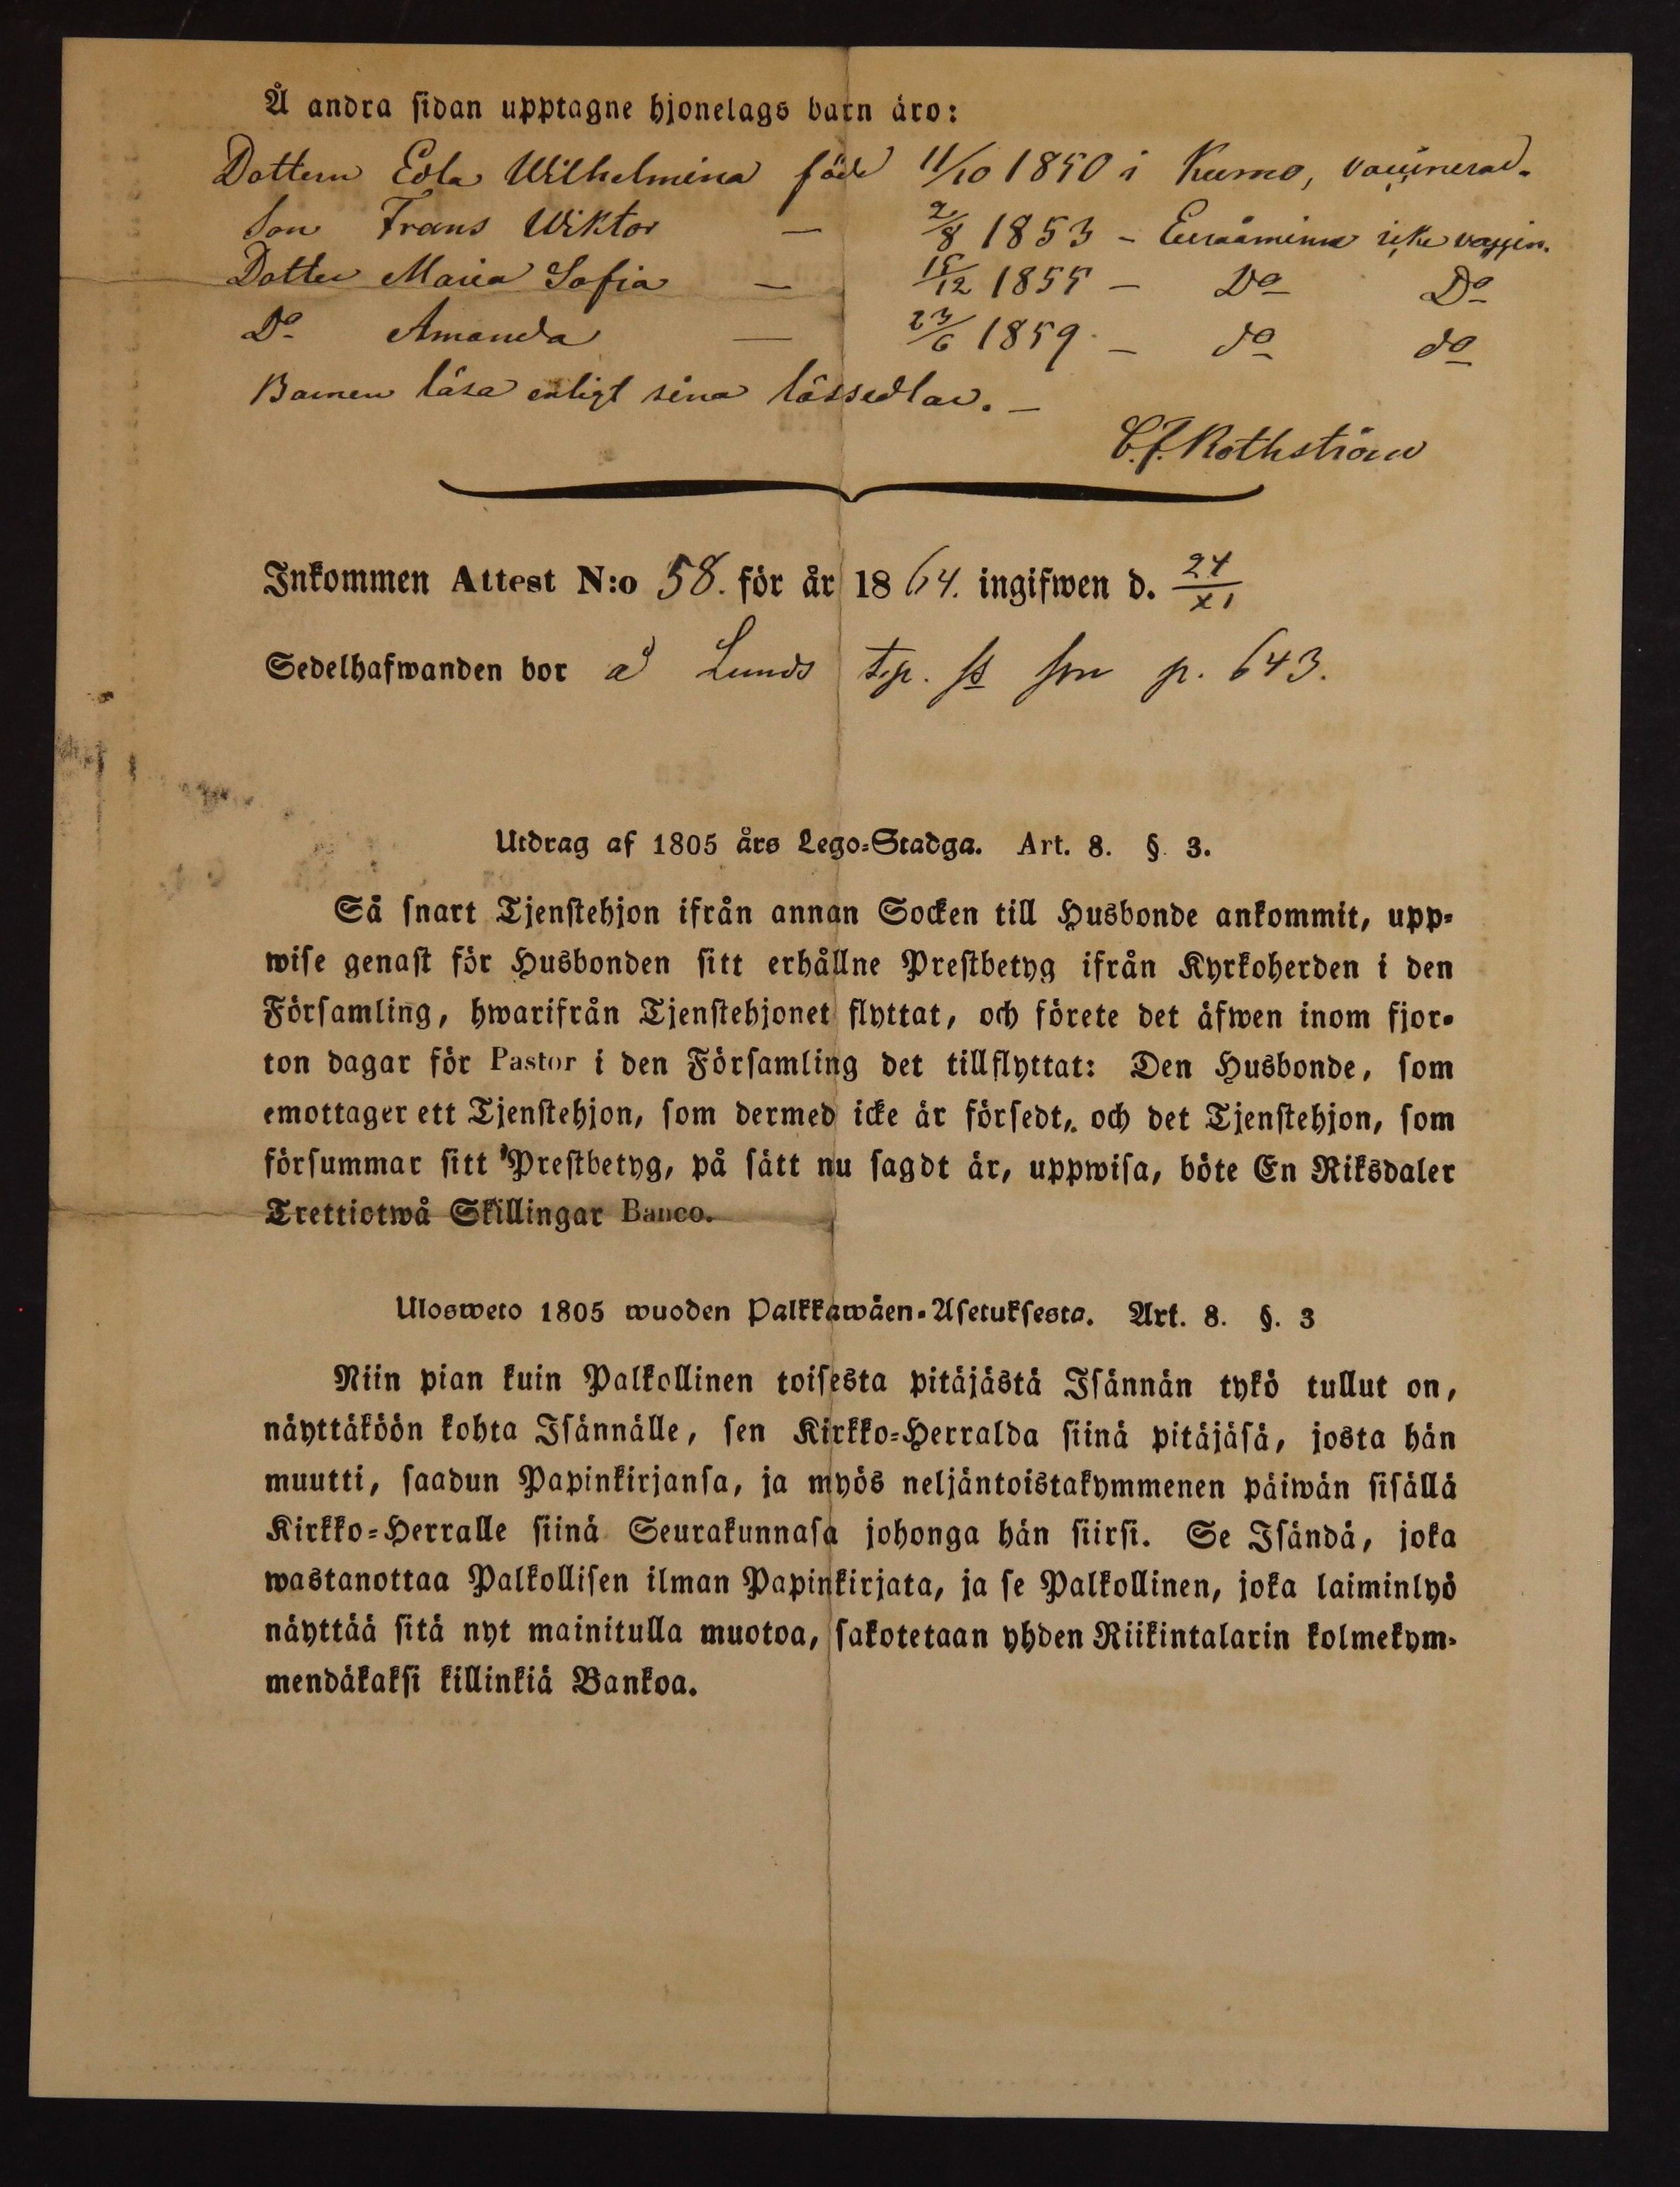 Å andra sidan upptagne hjonelags barn äro:
Dottern Edla Wilhelmina född 11/10 1850 i Kumo, vaccinerad.
Son Frans Wiktor — 2/8 1853 – Euraåminne icke vaccin.
Dotter Maria Sofia — 15/12 1855 – Do Do
Do Amanda — 23/6 1859 – do do
Barnen läsa enligt sina lässedlar. –
C. J. Rothström
Inkommen Attest N:o 58. för år 1864. ingifwen d. 24/XI
Sedelhafwanden bor å Lunds p. 643.
Utdrag af 1805 års Lego-Stadga. Art. 8. §. 3.
Så snart Tjenstehjon ifrån annan Socken till Husbonde ankommit, upp-
wise genast för Husbonden sitt erhållne Prestbetyg ifrån Kyrkoherden i den
Församling, hwarifrån Tjenstehjonet flyttat, och förete det äfwen inom fjor-
ton dagar för Pastor i den Församling det tillflyttat: Den Husbonde, som
emottager ett Tjenstehjon, som dermed icke är försedt, och det Tjenstehjon, som
försummar sitt Prestbetyg, på sätt nu sagdt är, uppwisa, böte En Riksdaler
Trettiotwå Skillingar Banco.
Ulosweto 1805 wuoden Palkkawäen-Asetuksesta. Art. 8. §. 3
Niin pian kuin Palkollinen toisesta pitäjästä Isännän tykö tullut on,
näyttäköön kohta Isännälle, sen Kirkko-Herralda siinä pitäjäsä, josta hän
muutti, saadun Papinkirjansa, ja myös neljäntoistakymmenen päiwän sisällä
Kirkko-Herralle siinä Seurakunnasa johonga hän siirsi. Se Isändä, joka
wastanottaa Palkollisen ilman Papinkirjata, ja se Palkollinen, joka laiminlyö
näyttää sitä nyt mainitulla muotoa, sakotetaan yhden Riikintalarin kolmekym-
mendäkaksi killinkiä Bankoa.